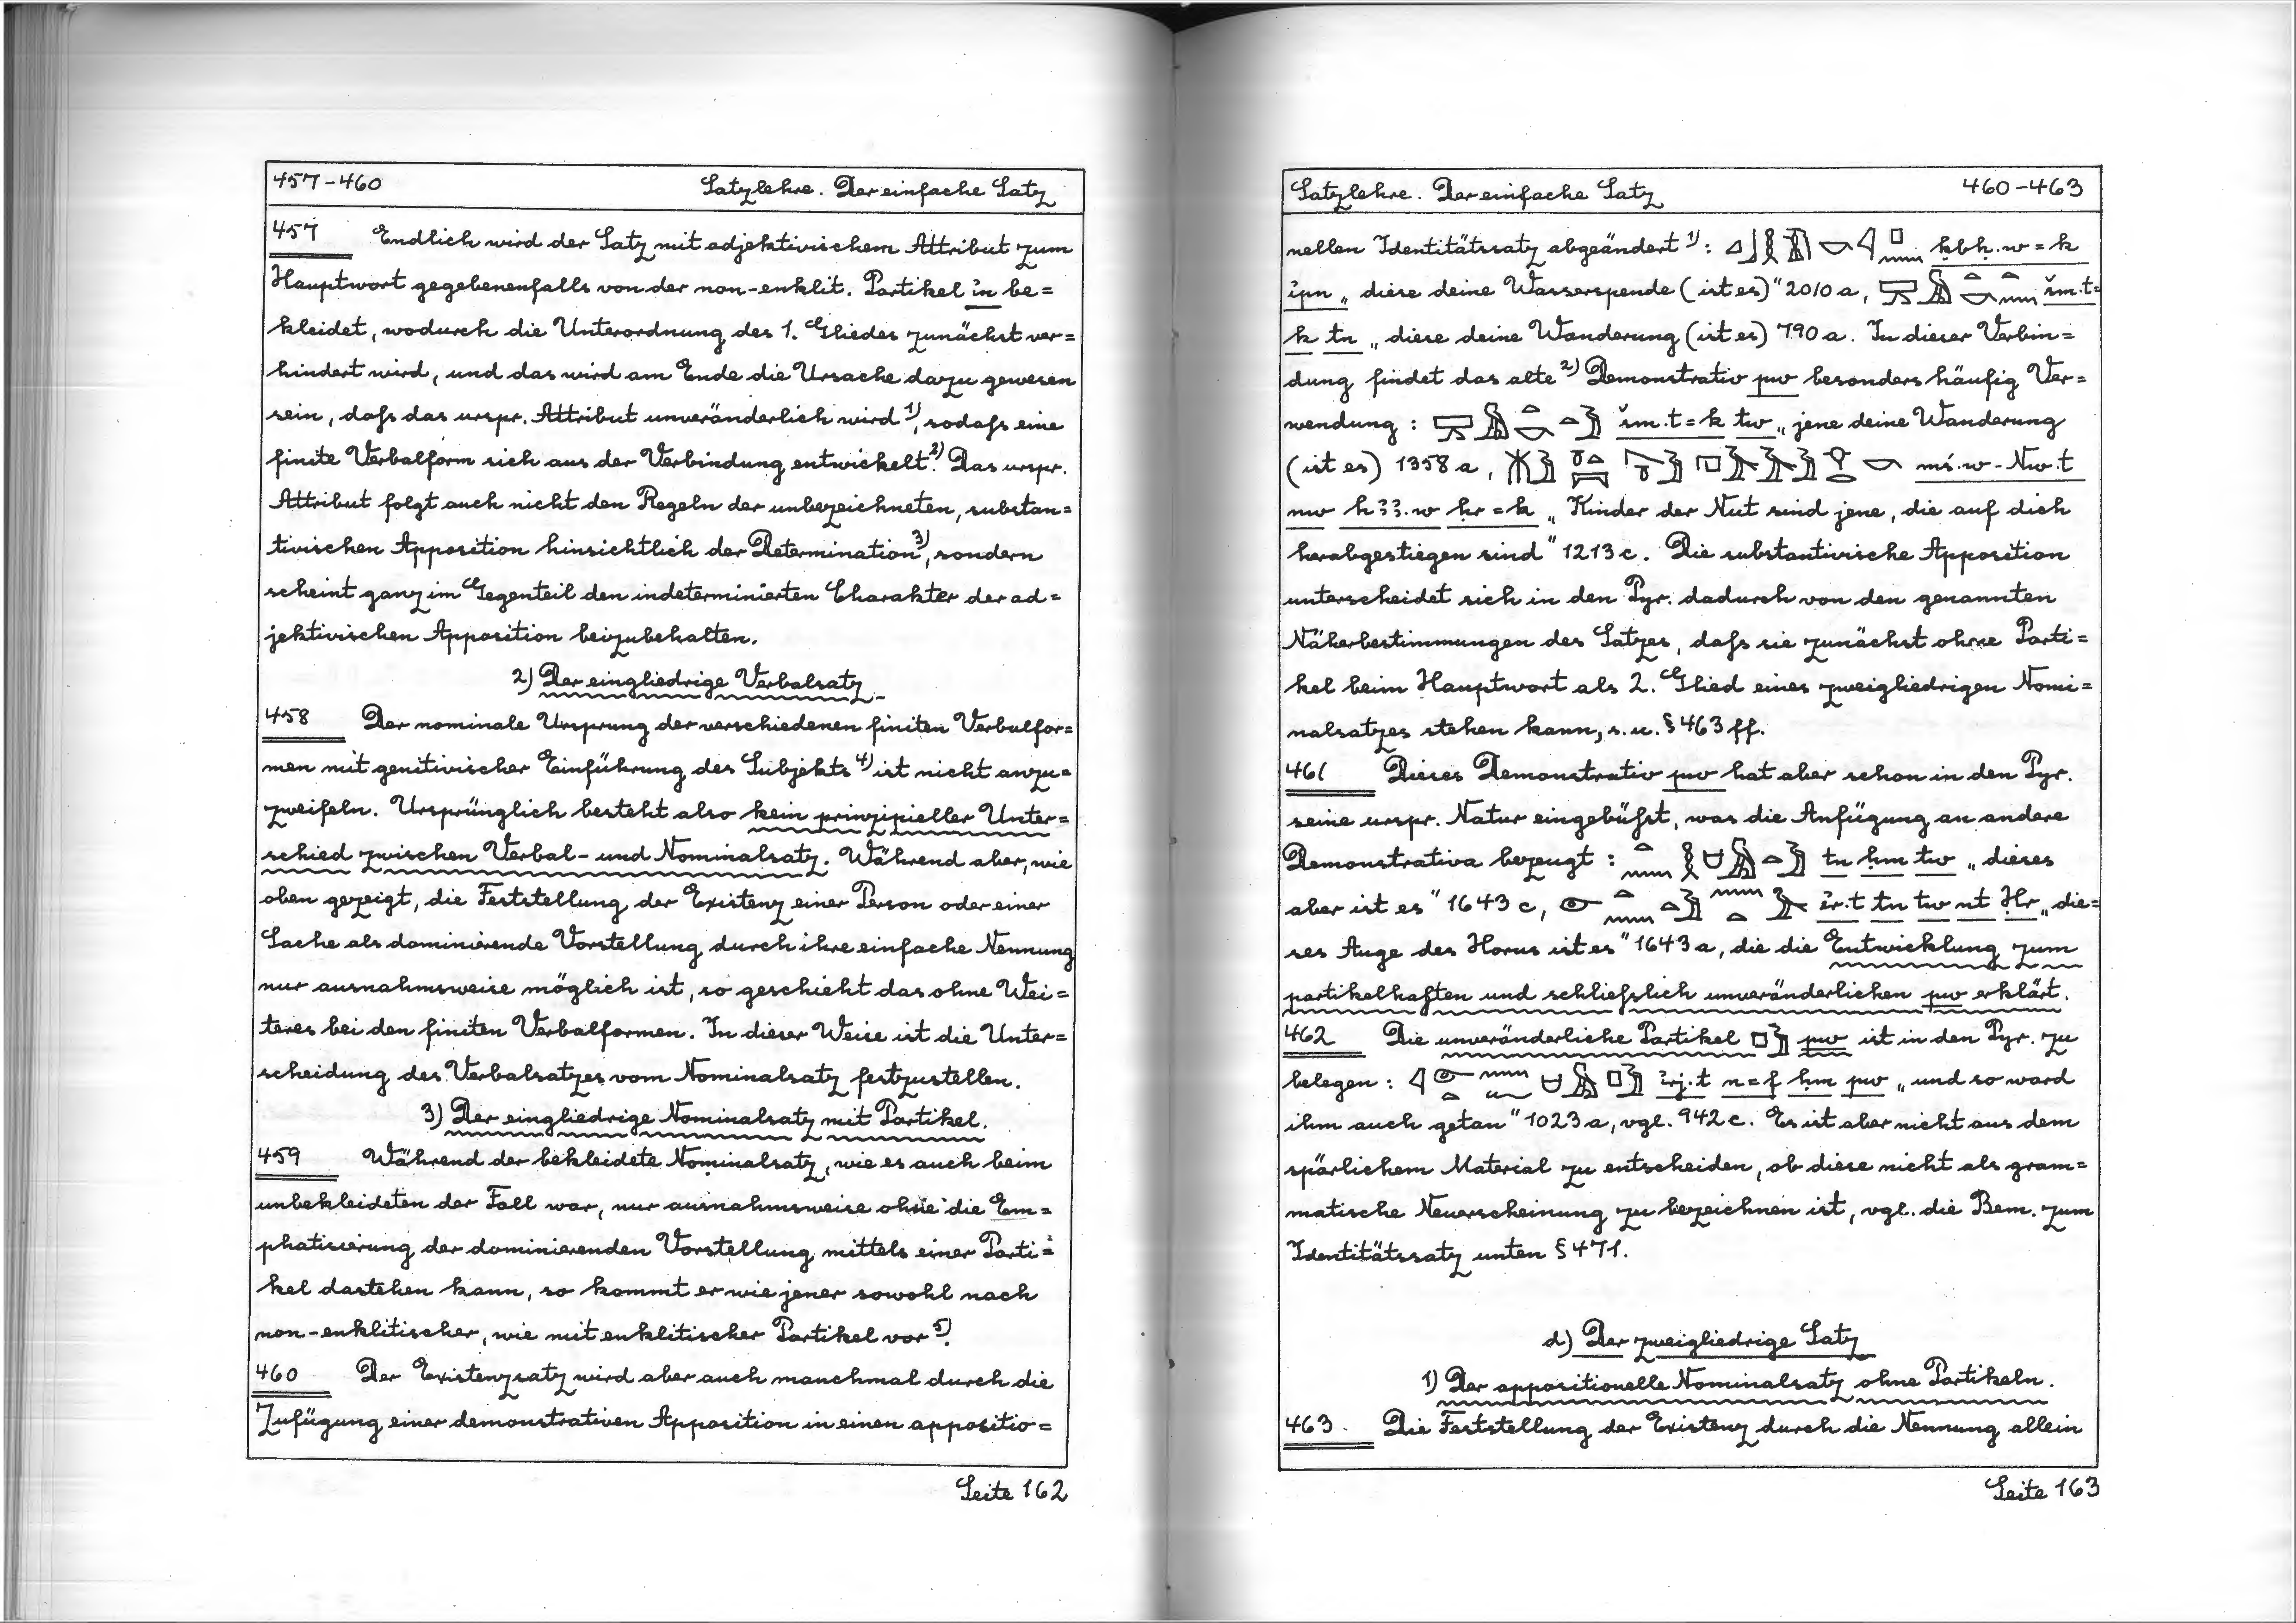 457-460 Satzlehre. Der einfache Satz
457 Endlich wird der Satz mit adjektivischem Attribut zum
Hauptwort gegebenenfalls von der non-enklit. Partikel in be=
kleidet, wodurch die Unterordnung des 1. Gliedes zunächst ver=
hindert wird, und das wird am Ende die Ursache dazu gewesen
sein, dafs das urspr. Attribut unveränderlich wird 1), sodafs eine
finite Verbalform sich aus der Verbindung entwickelt 2). Das urspr.
Attribut folgt auch nicht den Regeln der unbezeichneten, substan=
tivischen Apposition hinsichtlich der Determination 3), sondern
scheint ganz im Gegenteil den indeterminierten Charakter der ad=
jektivischen Apposition beizubehalten.
2) Der eingliedrige Verbalsatz.
458 Der nominale Ursprung der verschiedenen finiten Verbalfor=
men mit genitivischer Einführung des Subjekts 4) ist nicht anzu=
zweifeln. Ursprünglich besteht also kein prinzipieller Unter=
schied zwischen Verbal- und Nominalsatz. Während aber, wie
oben gezeigt, die Feststellung der Existenz einer Person oder einer
Sache als dominierende Vorstellung durch ihre einfache Nennung
nur ausnahmsweise möglich ist, so geschieht das ohne Wei=
teres bei den finiten Verbalformen. In dieser Weise ist die Unter=
scheidung des Verbalsatzes vom Nominalsatz festzustellen.
3) Der eingliedrige Nominalsatz mit Partikel.
459 Während der bekleidete Nominalsatz, wie es auch beim
unbekleideten der Fall war, nur ausnahmsweise ohne die Em=
phatisierung der dominierenden Vorstellung mittels einer Parti=
kel dastehen kann, so kommt er wie jener sowohl nach
non-enklitischer, wie mit enklitischer Partikel vor 5).
460 Der Existenzsatz wird aber auch manchmal durch die
Zufügung einer demonstrativen Apposition in einen appositio=
Seite 162
Satzlehre. Der einfache Satz 460-463
nellen Identitätssatz abgeändert 1): ḳbḥ.w=k
ı͗pn „diese deine Wasserspende (ist es)" 2010 a, šm.t=
k tn „diese deine Wanderung (ist es) 790 a. In dieser Verbin=
dung findet das alte 2) Demonstrativ pw besonders häufig Ver=
wendung: šm.t=k tw „jene deine Wanderung
(ist es) 1358 a, mś.w-Nw.t
nw hꜣꜣ.w ḥr=k „Kinder der Nut sind jene, die auf dich
herabgestiegen sind" 1213 c. Die substantivische Apposition
unterscheidet sich in den Pyr. dadurch von den genannten
Näherbestimmungen des Satzes, dafs sie zunächst ohne Parti=
kel beim Hauptwort als 2. Glied eines zweigliedrigen Nomi=
nalsatzes stehen kann, s. u. § 463 ff.
461 Dieses Demonstrativ pw hat aber schon in den Pyr.
seine urspr. Natur eingebüfst, was die Anfügung an andere
Demonstrativa bezeugt: tn ḥm tw „dieses
aber ist es" 1643 c, ı͗r.t tn tw nt Ḥr „die=
ses Auge des Horus ist es" 1643 a, die die Entwicklung zum
partikelhaften und schliefslich unveränderlichen pw erklärt.
462 Die unveränderliche Partikel pw ist in den Pyr. zu
belegen: ı͗rj.t n=f ḥm pw „und so ward
ihm auch getan" 1023 a, vgl. 942 c. Es ist aber nicht aus dem
spärlichem Material zu entscheiden, ob diese nicht als gram=
matische Neuerscheinung zu bezeichnen ist, vgl. die Bem. zum
Identitätssatz unten § 471.
d) Der zweigliedrige Satz
1) Der appositionelle Nominalsatz ohne Partikeln.
463. Die Feststellung der Existenz durch die Nennung allein
Seite 163